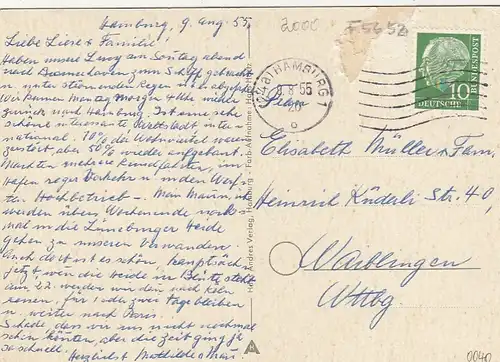 Hamburg, 9. Aug. 55
Liebe Liese + Familie!
Haben unsere Lucy am Sonntag abend
nach Bremerhaven zum Schiff gebracht
u. unter strömendem Regen
Wir kamen Montag morgen
zurück nach Hamburg. Ist eine sehr
schöne interessante Weltstadt, inter-
national. 70% der Wohnviertel waren
zerstört aber 50% wieder aufgebaut.
Machten mehrere Rundfahrten, im
Hafen reger Verkehr u. in den Werf-
ten Hochbetrieb. – Mein Mann u. ich
werden übers Wochenende noch-
mal in die Lüneburger Heide
gehen zu unseren Verwandten.
Auch dort ist es schön hauptsäch-
jetzt, wenn die Heide in Blüte steht
am 22. werden wir dann nach Köln
reisen, für 1 oder zwei Tage bleiben
u. weiter nach Paris.
Schade dass wir uns nicht nochmal
sehen könnten, aber die Zeit ging ja
so schnell.
Herzlichst Mathilde + Max
2000
F5652
(24a) HAMBURG 1
9.8.55
DEUTSCHE BUNDESPOST
10
Frau
Elisabeth Müller + Fam.
Heinrich Küderli Str. 40,
Waiblingen
Wttbg.
Hans Andres Verlag, Hamburg - Farb-Aufnahme
0040